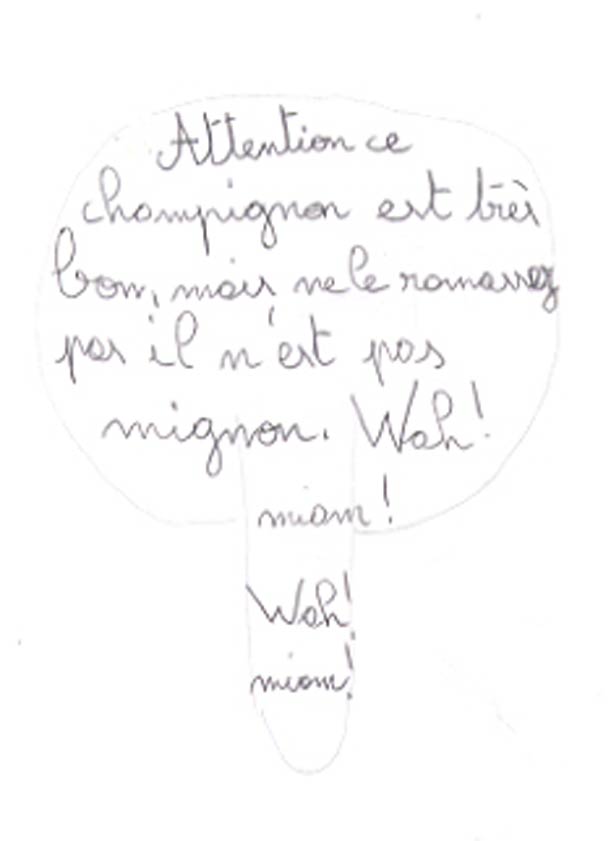 Attention ce
champignon est très
bon, mais ne le romassez
pas il n'est pas
mignon. Wah!
miam!
Wah!
miam!